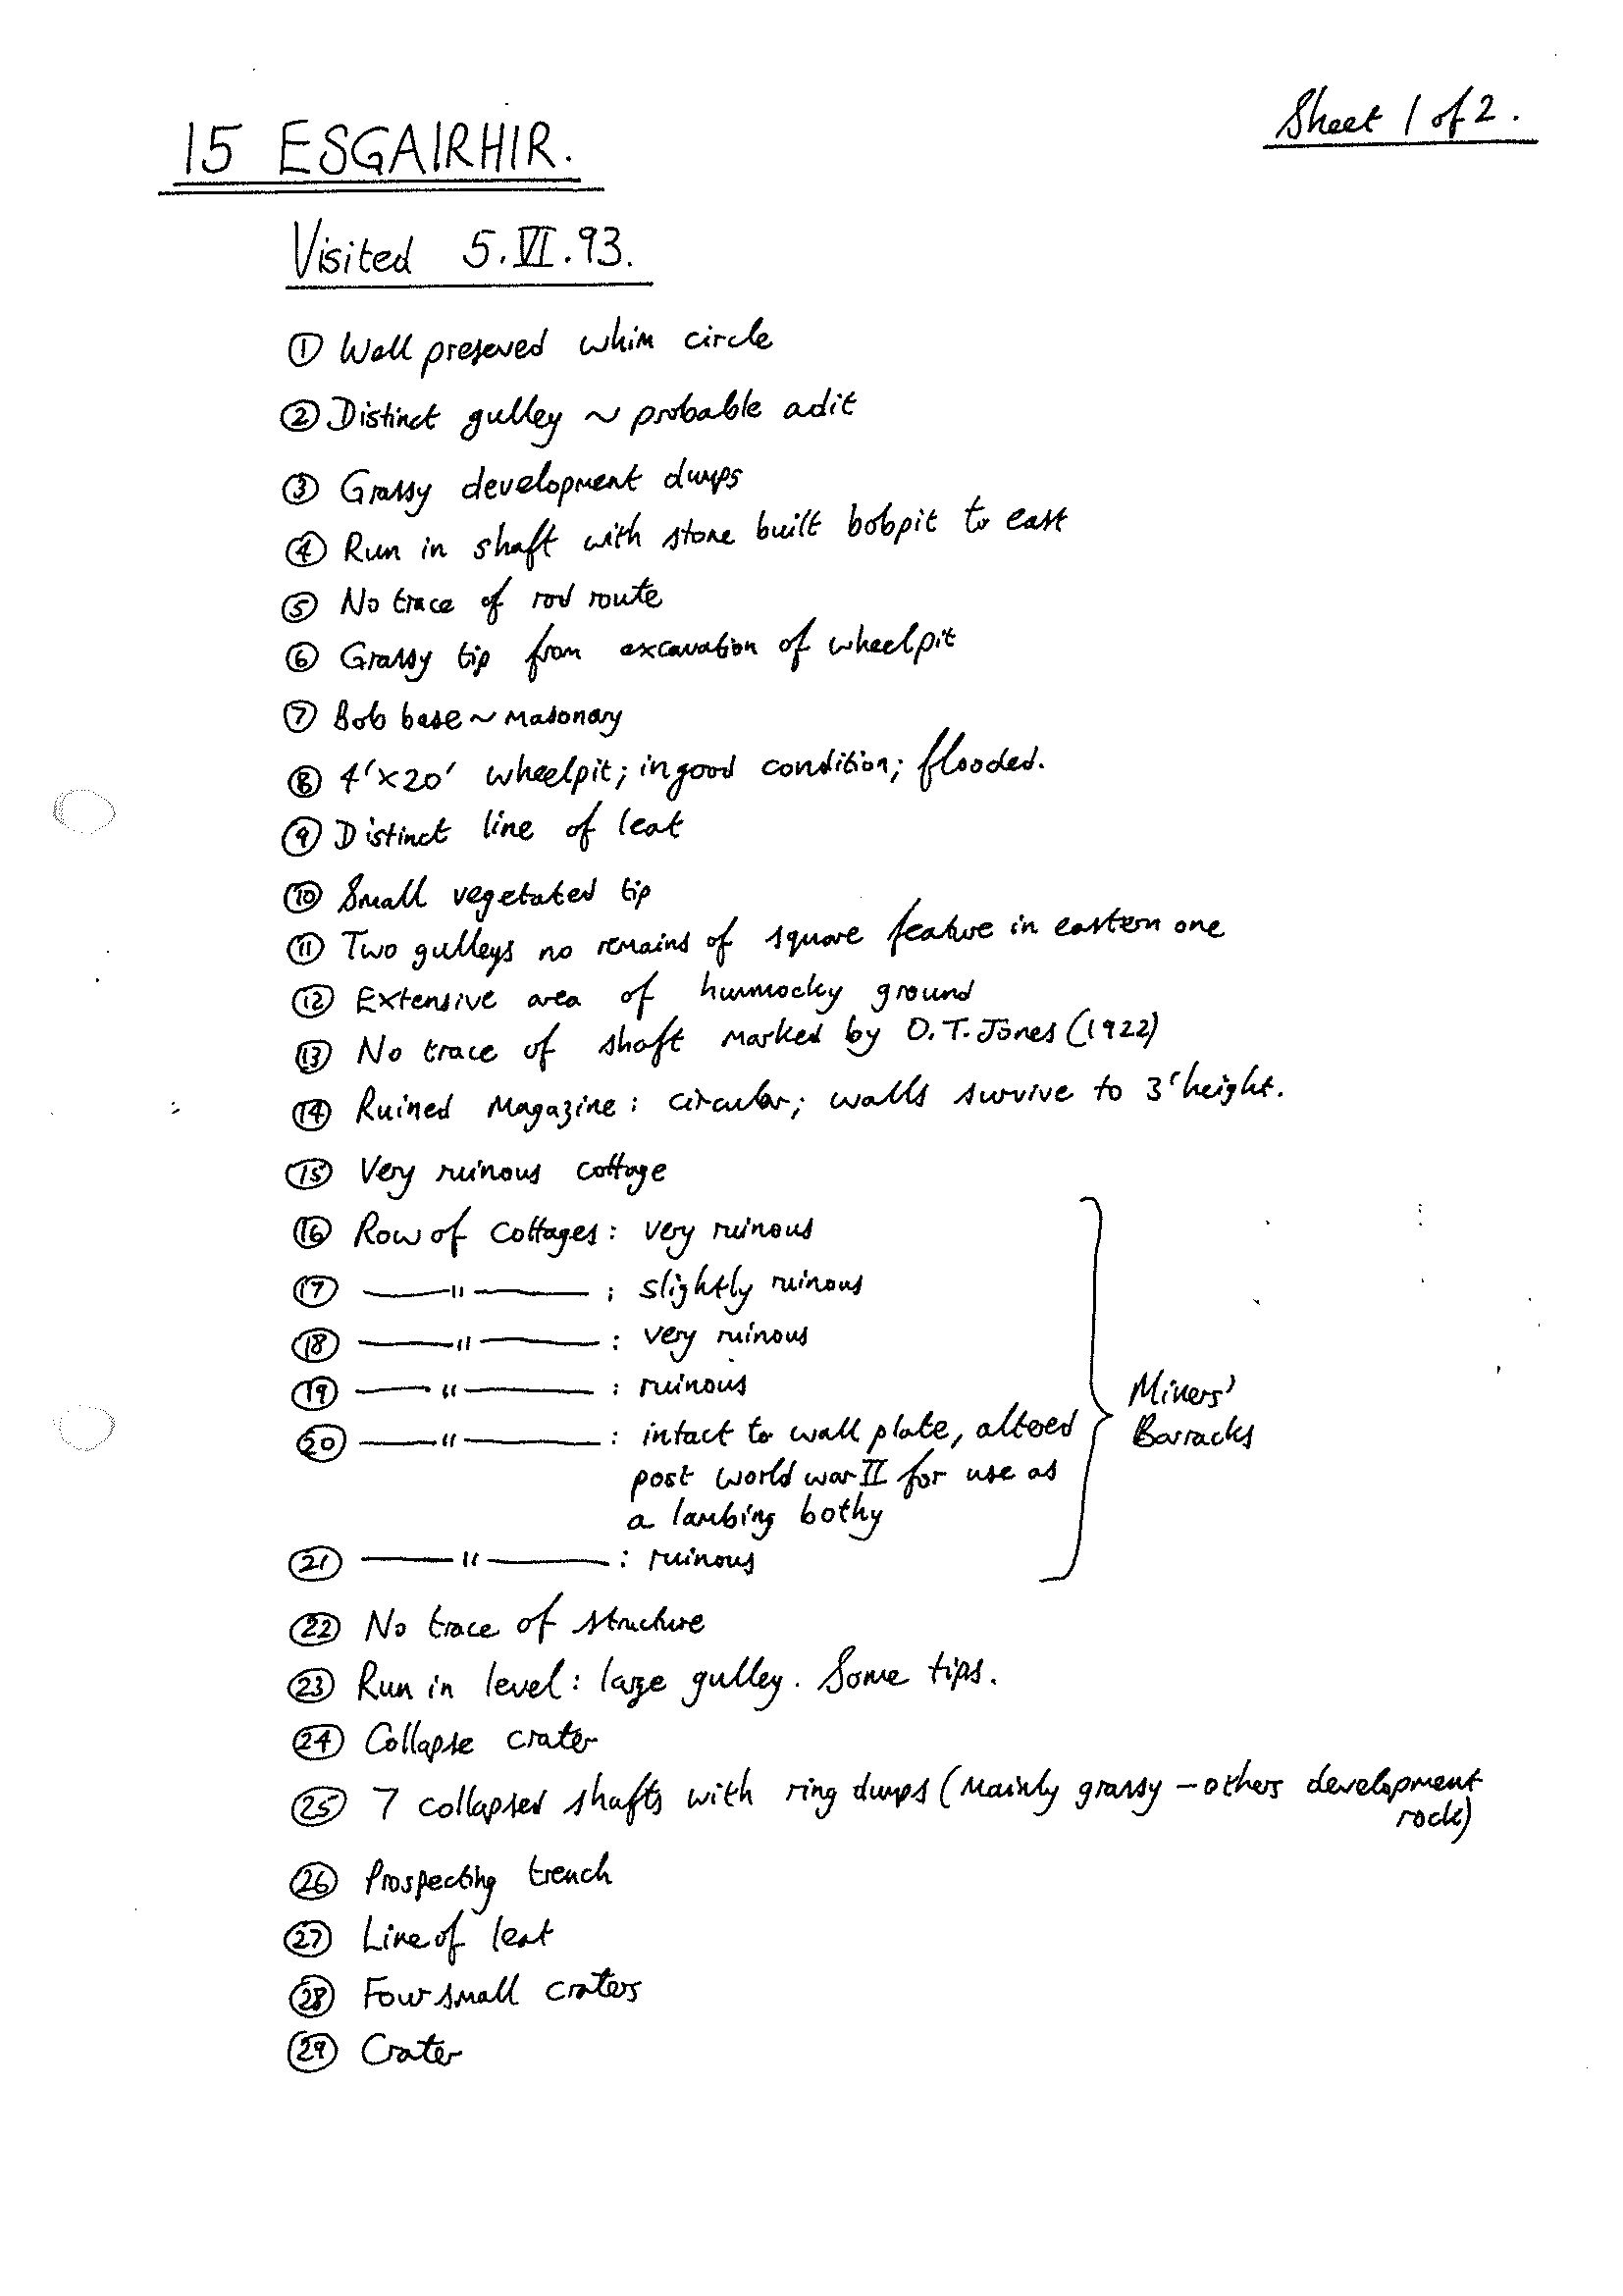 Sheet 1 of 2.
15 ESGAIRHIR.
Visited 5.VI.93.
① Well preseved whim circle
② Distinct gulley ~ probable adit
③ Grassy development dumps
④ Run in shaft with stone built bobpit to east
⑤ No trace of rod route
⑥ Grassy tip from excavation of wheelpit
⑦ Bob base ~ masonary
⑧ 4'×20' wheelpit; in good condition; flooded.
⑨ Distinct line of leat
⑩ Small vegetated tip
⑪ Two gulleys no remains of square feature in eastern one
⑫ Extensive area of hummocky ground
⑬ No trace of shaft marked by O.T. Jones (1922)
⑭ Ruined Magazine: circular; walls survive to 3' height.
⑮ Very ruinous cottage
⑯ Row of Cottages: very ruinous
⑰ —"— ; slightly ruinous
⑱ —"— : very ruinous
⑲ —"— : ruinous
⑳ —"— : intact to wall plate, altered
post world war II for use as
a lambing bothy
㉑ —"— : ruinous
Miners'
Barracks
㉒ No trace of structure
㉓ Run in level: large gulley. Some tips.
㉔ Collapse crater
㉕ 7 collapsed shafts with ring dumps (mainly grassy – others development
rock)
㉖ Prospecting trench
㉗ Line of leat
㉘ Four small craters
㉙ Crater